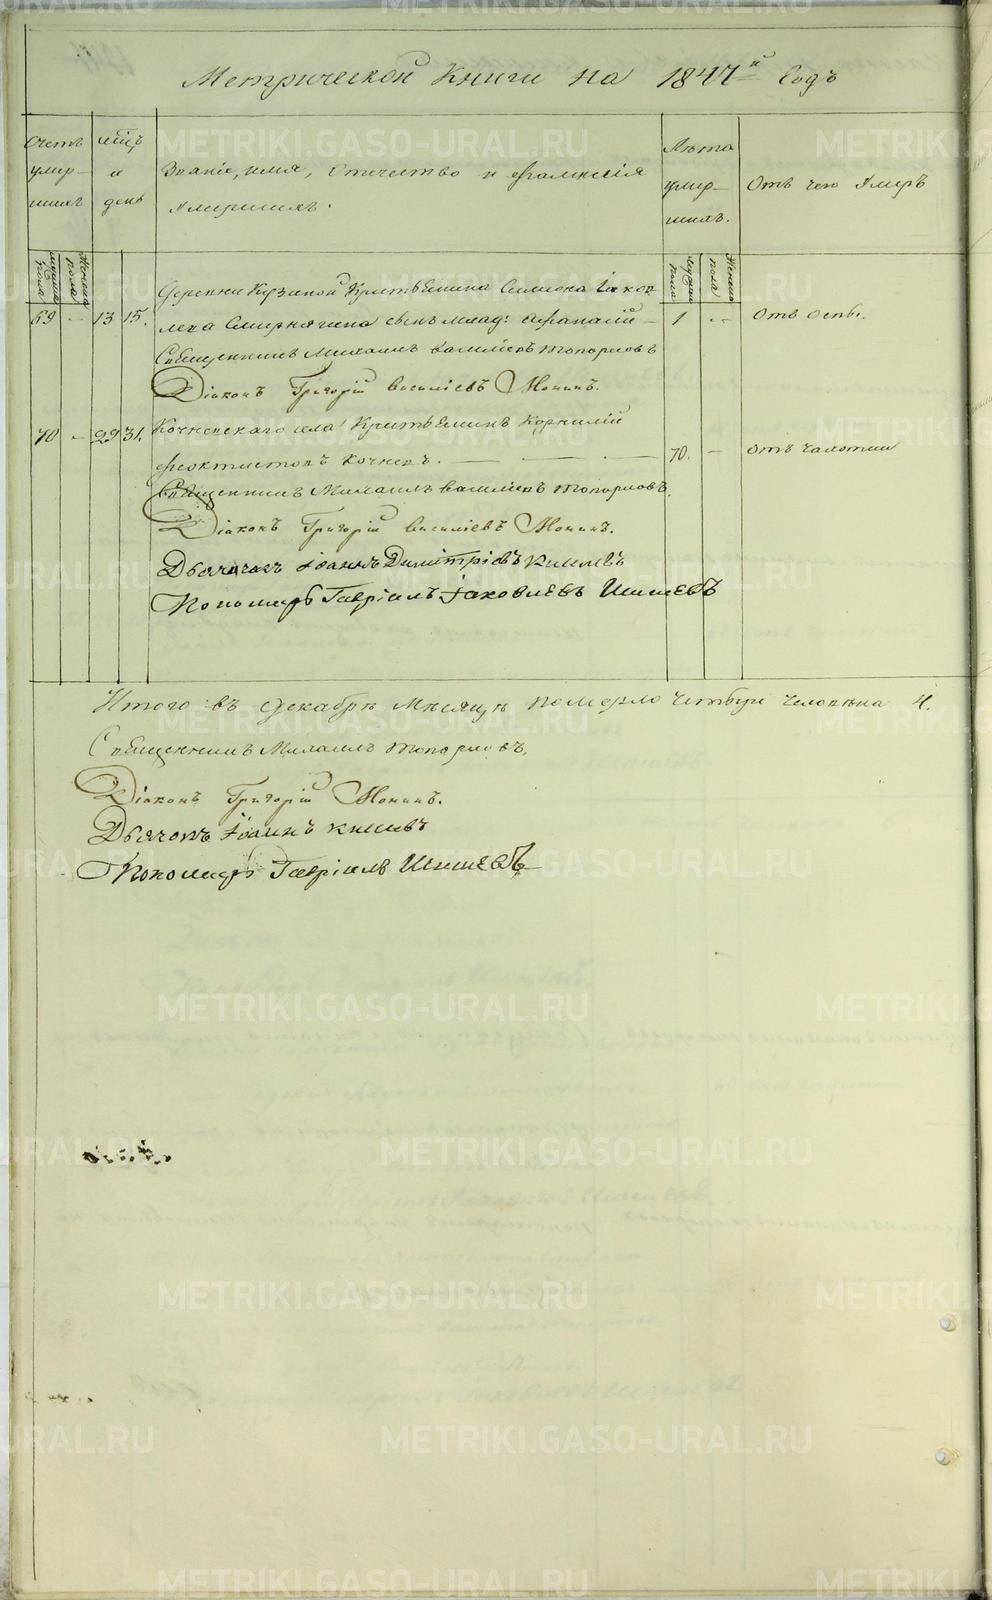 Метрической Книги на 1847й Годъ
Счетъ умер-шихъ
мцъ и день
Званіе, имя, отечество и фамилия умершихъ.
Лѣта умер-шихъ.
Отъ чего умеръ
мужска пола
Женска пола
мужска пола
Женска пола
Деревни Крестьянина Симеона Іаков
69 - 13 15. лева сынъ млад: Афанасій - 1 - Отъ оспы.
Священникъ Михаилъ Василіевъ Топорковъ
Діаконъ Григорій Василіевъ Монинъ.
70 - 29 31. Кочневскаго села Крестьянинъ Корнилій
Феоктистовъ Кочневъ. 70. - отъ чахотки
Священникъ Михаилъ Василіевъ Топорковъ.
Діаконъ Григорій Василіевъ Монинъ.
Дьячокъ Іоаннъ Димитріевъ
Пономарь Гавріилъ Іаковлевъ Шишевъ
Итого въ Декабрѣ Мѣсяцѣ померло четверо человѣка 4.
Священникъ Михаилъ Топорковъ.
Діаконъ Григорій Монинъ.
Дьячокъ Іоаннъ
Пономарь Гавріилъ Шишевъ
METRIKI.GASO-URAL.RU